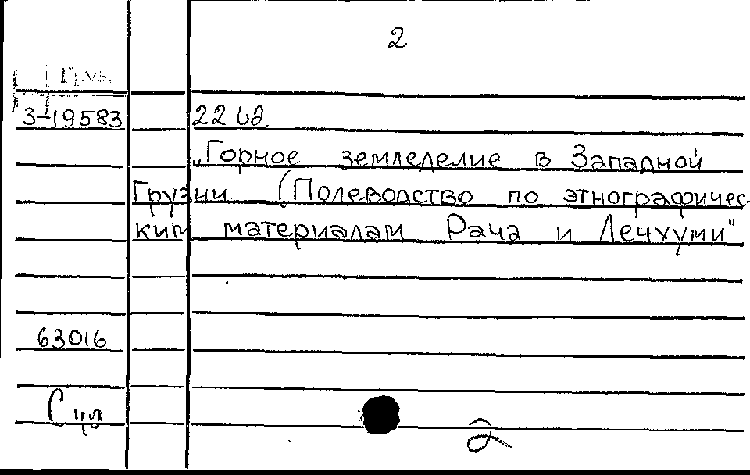 2
3-19583 22 სმ.
„Горное земледелие в Западной
Грузии (Полеводство по этнографичес-
ким материалам Рача и Лечхуми"
63016
2